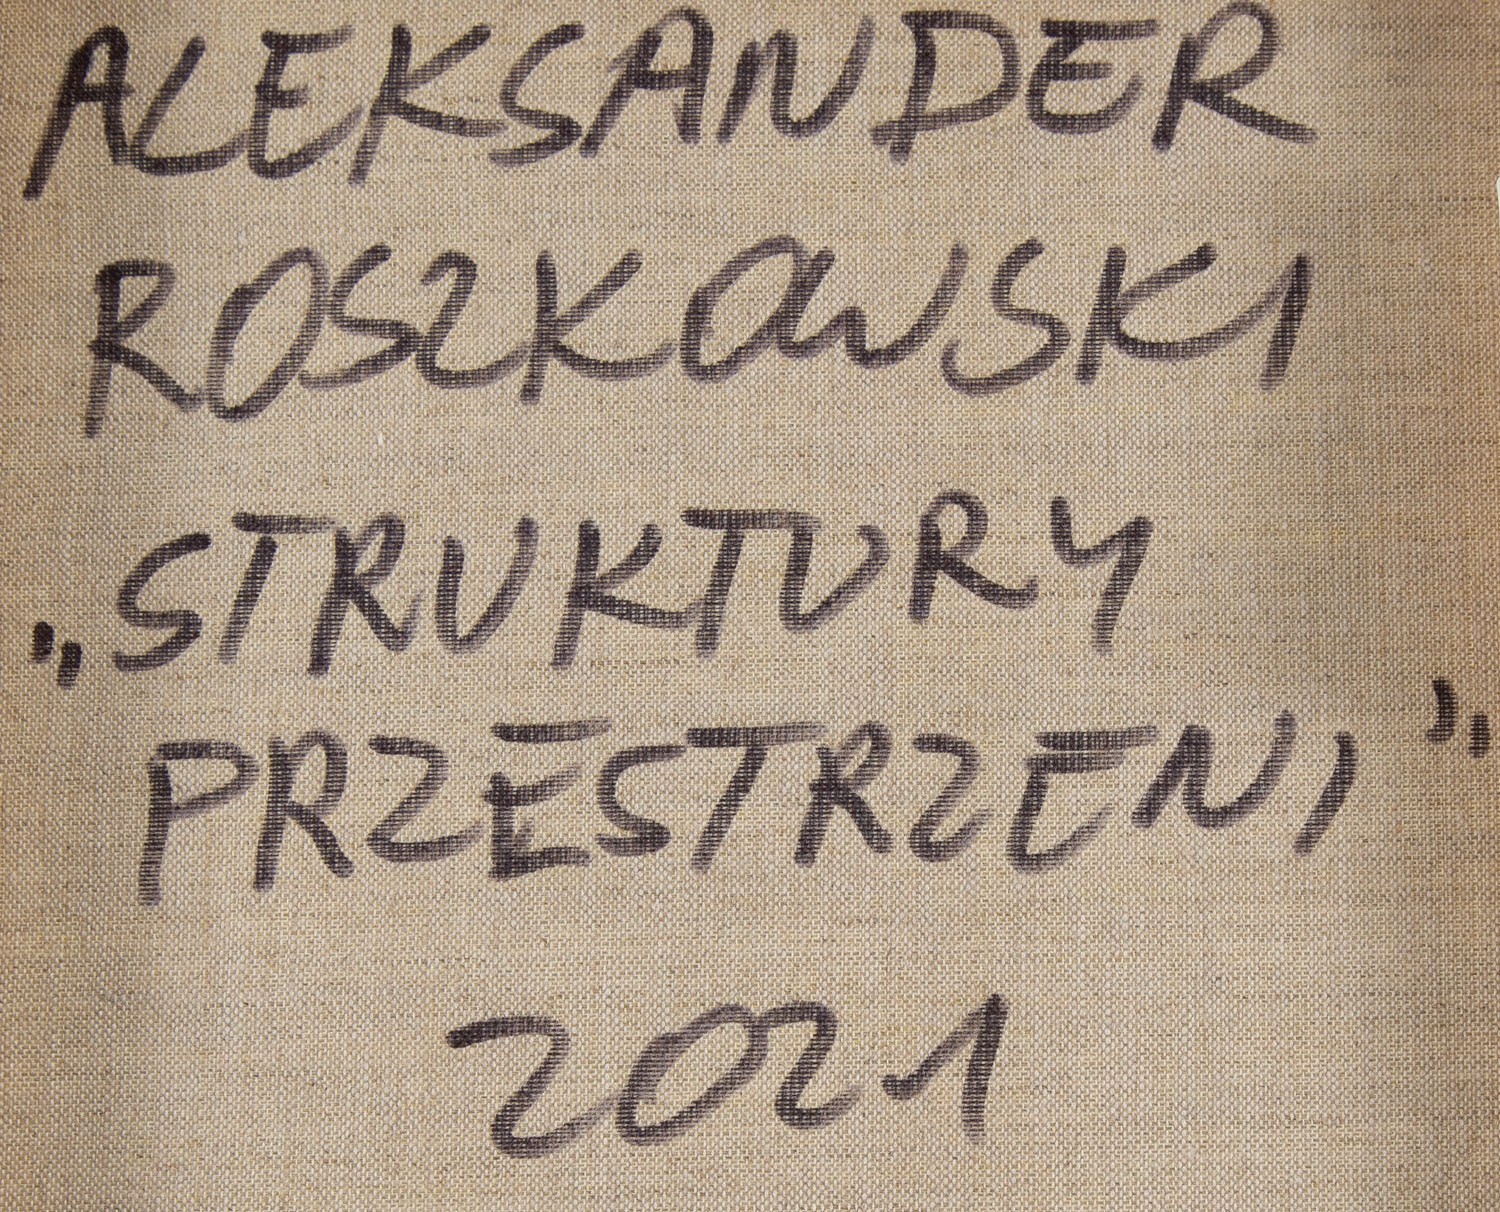 ALEKSANDER
ROSZKOWSKI
„STRUKTURY
PRZESTRZENI”
2021